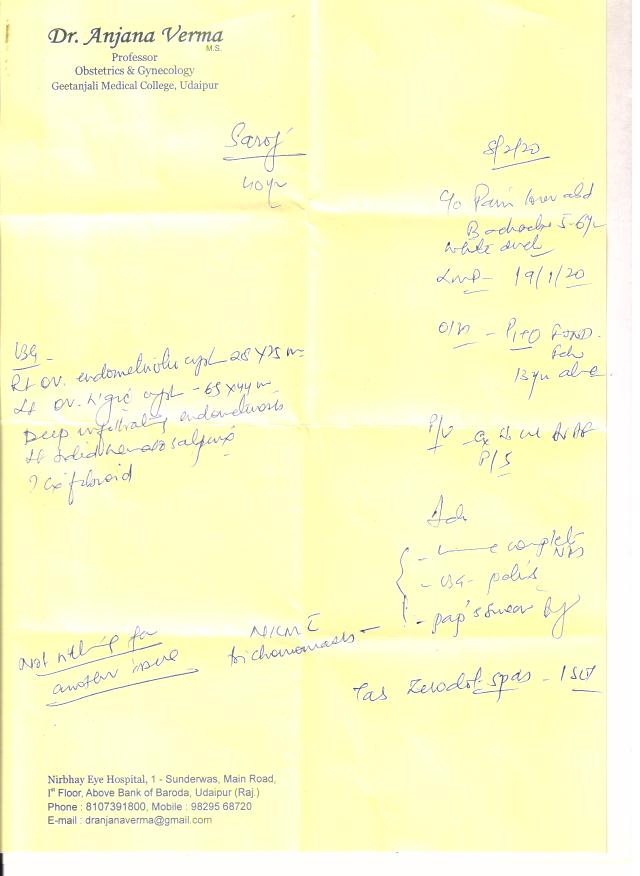 Dr. Anjana Verma
M.S.
Professor
Obstetrics & Gynecology
Geetanjali Medical College, Udaipur
Saroj
40yr
5/2/20
c/o Pain lower abd
Backache 5-6yr
white disch
LMP - 19/1/20
O/H - P1+0 FTND
13yr
USG -
Rt ov. endometriotic cyst - 28 X 25 m
Lt ov. h'gic cyst - 65 X 44 m
Deep infiltrating endometriosis
Lt hematosalpinx
? Cx fibroid
P/V - Cx
P/S
Adv
- Urine complete
- USG - pelvis
- pap's smear
NILM
trichomonasis
Not willing for
another issue
Tab Zerodol spas - 1
Nirbhay Eye Hospital, 1 - Sunderwas, Main Road,
Ist Floor, Above Bank of Baroda, Udaipur (Raj.)
Phone : 8107391800, Mobile : 98295 68720
E-mail : dranjanaverma@gmail.com